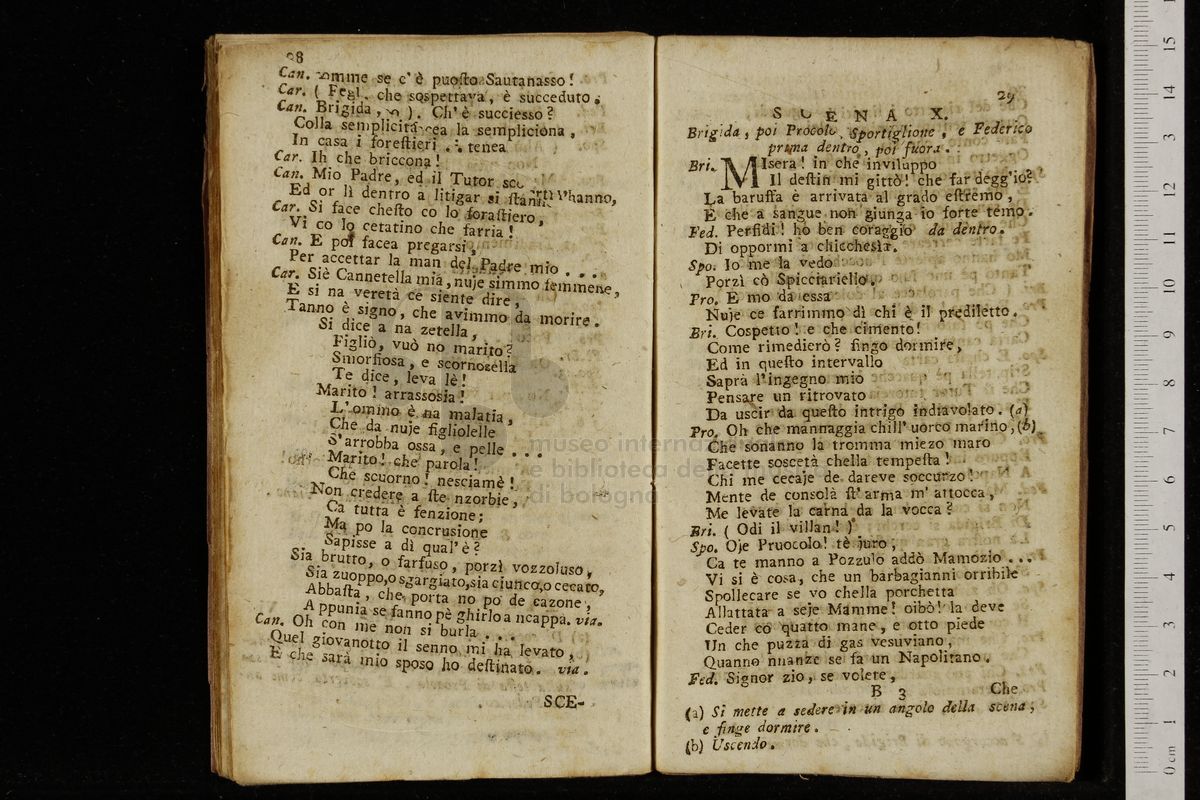 28
Can. omme se c' è puoſto Sautanasso!
Car. ( che sospettava, è succeduto.
Can. Brigida, ). Ch' è succiesso?
Colla semplicità la sempliciona,
In casa i foreſtieri tenea
Car. Ih che briccona!
Can. Mio Padre, ed il Tutor
Ed or lì dentro a litigar si l'hanno,
Car. Si face cheſto co lo foraſtiero,
Vi co lo cetatino che farria!
Can. E poi facea pregarsi,
Per accettar la man del Padre mio . . .
Car. Siè Cannetella mia, nuje simmo femmene,
E si na veretà ce siente dire,
Tanno è signo, che avimmo da morire.
Si dice a na zetella,
Figliò, vuò no marito?
Smorfiosa, e scornosella
Te dice, leva lè!
Marito! arrassosia!
L'ommo è na malatia,
Che da nuje figliolelle
S'arrobba ossa, e pelle . . .
Marito! che parola!
Che scuorno! nesciamè!
Non credere a ſte nzorbie,
Ca tutta è fenzione;
Ma po la concrusione
Sapisse a dì qual' è?
Sia brutto, o farfuso, porzì vozzoluso,
Sia zuoppo, o sgargiato, sia ciunco, o cecato,
Abbaſta, che porta no po' de cazone,
Appunia se fanno pè ghirlo a ncappa. via.
Can. Oh con me non si burla . . .
Quel giovanotto il senno mi ha levato,
E che sarà mio sposo ho deſtinato. via.
SCE-
29
SCENA X.
Brigida, poi Procolo, Sportiglione, e Federico
prima dentro, poi fuora.
Bri. MIsera! in che inviluppo
Il deſtin mi gittò! che far degg'io?
La baruffa è arrivata al grado eſtremo,
E che a sangue non giunga io forte temo.
Fed. Perfidi! ho ben coraggio da dentro.
Di oppormi a chicchesìa.
Spo. Io me la vedo
Porzì cò Spicciariello.
Pro. E mo da essa
Nuje ce farrimmo dì chi è il prediletto.
Bri. Cospetto! e che cimento!
Come rimedierò? fingo dormire,
Ed in queſto intervallo
Saprà l'ingegno mio
Pensare un ritrovato
Da uscir da queſto intrigo indiavolato. (a)
Pro. Oh che mannaggia chill' uorco marino, (b)
Che sonanno la tromma miezo maro
Facette soscetà chella tempeſta!
Chi me cecaje de dareve soccurzo!
Mente de consolà ſt' arma m' attocca,
Me levate la carna da la vocca?
Bri. ( Odi il villan! )
Spo. Oje Pruocolo! tè juro,
Ca te manno a Pozzulo addò Mamozio . . .
Vi si è cosa, che un barbagianni orribile
Spollecare se vo chella porchetta
Allattata a seje Mamme! oibò! la deve
Ceder co quatto mane, e otto piede
Un che puzza di gas vesuviano,
Quanno nnanze se fa un Napolitano.
Fed. Signor zio, se volete,
B 3 Che
(a) Si mette a sedere in un angolo della scena,
e finge dormire.
(b) Uscendo.
museo internazionale
e biblioteca della musica
di bologna